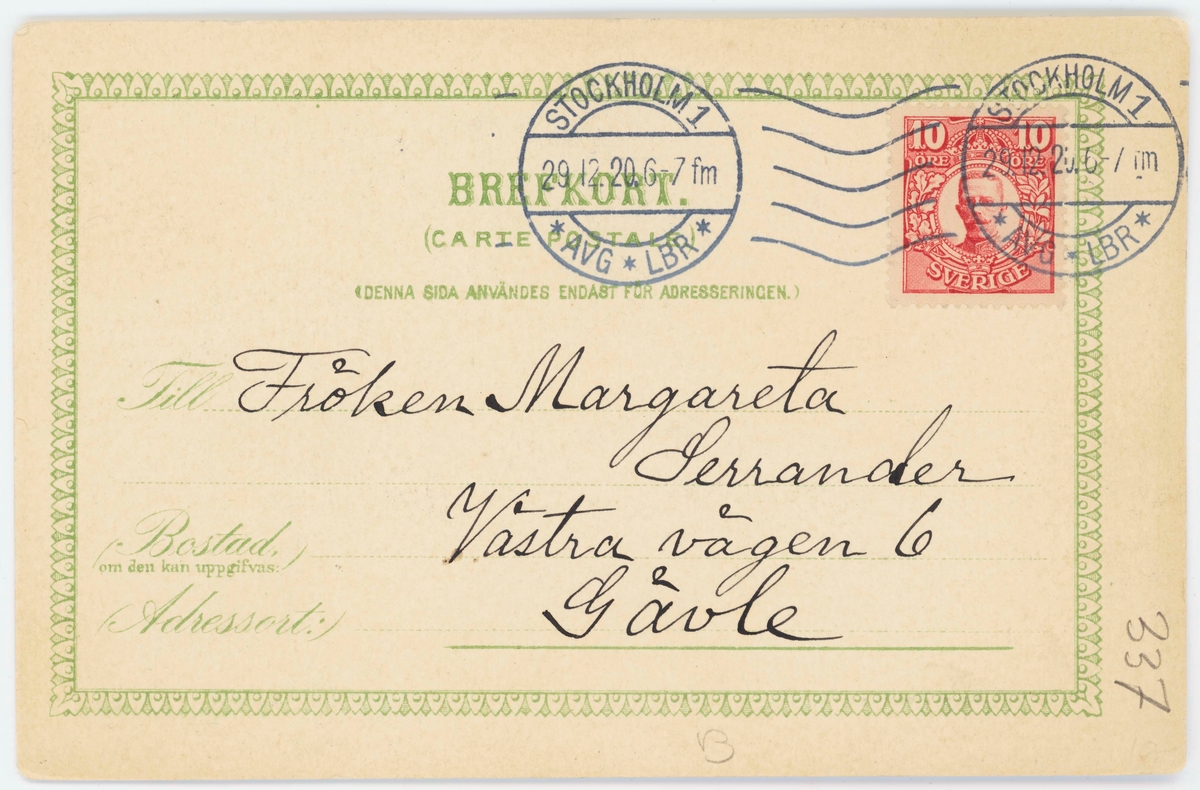 STOCKHOLM 1
29.12.20.6-7 fm
* AVG * LBR *
STOCKHOLM 1
29.12.20.6-7 fm
* AVG * LBR *
10 10
ÖRE ÖRE
SVERIGE
BREFKORT.
(CARTE POSTALE)
(DENNA SIDA ANVÄNDES ENDAST FÖR ADRESSERINGEN.)
Till Fröken Margareta
Serrander
Västra vägen 6
(Bostad,)
om den kan uppgifvas:
Gävle
(Adressort:)
337
B